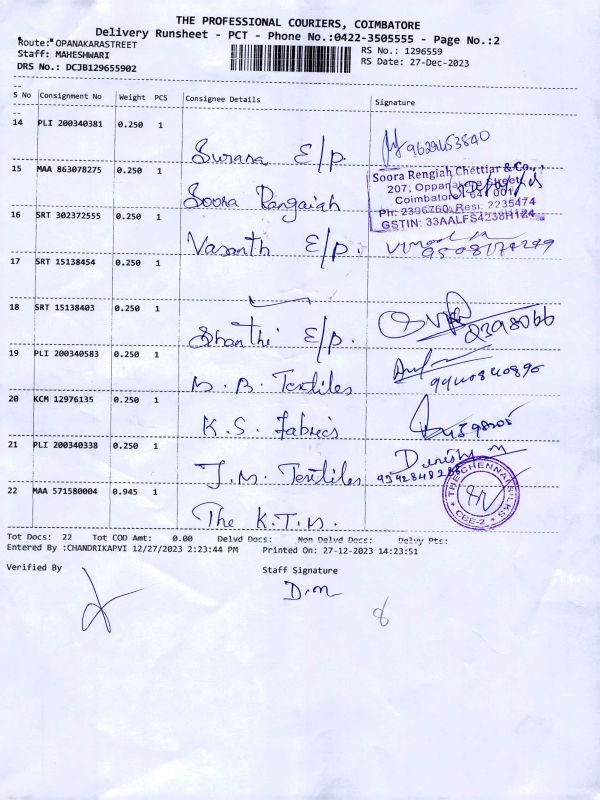 THE PROFESSIONAL COURIERS, COIMBATORE
Delivery Runsheet - PCT - Phone No.:0422-3505555 - Page No.:2
Route: OPANAKARASTREET
Staff: MAHESHWARI
DRS No.: DCJB129655902
RS No.: 1296559
RS Date: 27-Dec-2023
S No Consignment No Weight PCS Consignee Details Signature
14 PLI 200340381 0.250 1
Surana E/p. 9629453840
15 MAA 863078275 0.250 1
Soora Rangaiah
Soora Rengiah Chettiar & Co.,
207, Oppanakara Street,
Coimbatore - 641 001
Ph: 2396760, Resi: 2235474
GSTIN: 33AALFS4238H1Z4
16 SRT 302372555 0.250 1
Vasanth E/p.
17 SRT 15138454 0.250 1
18 SRT 15138403 0.250 1
Shanthi E/p. 2398066
19 PLI 200340583 0.250 1
Textiles 9940840896
20 KCM 12976135 0.250 1
K.S. Fabrics
21 PLI 200340338 0.250 1
Textiles Dinesh M
22 MAA 571580004 0.945 1
The K.T.M.
THE CHENNAI SILKS
CBE-2
Tot Docs: 22 Tot COD Amt: 0.00 Delvd Docs: Non Delvd Docs: Delvy Pts:
Entered By :CHANDRIKAPVI 12/27/2023 2:23:44 PM Printed On: 27-12-2023 14:23:51
Verified By Staff Signature
D.M
8